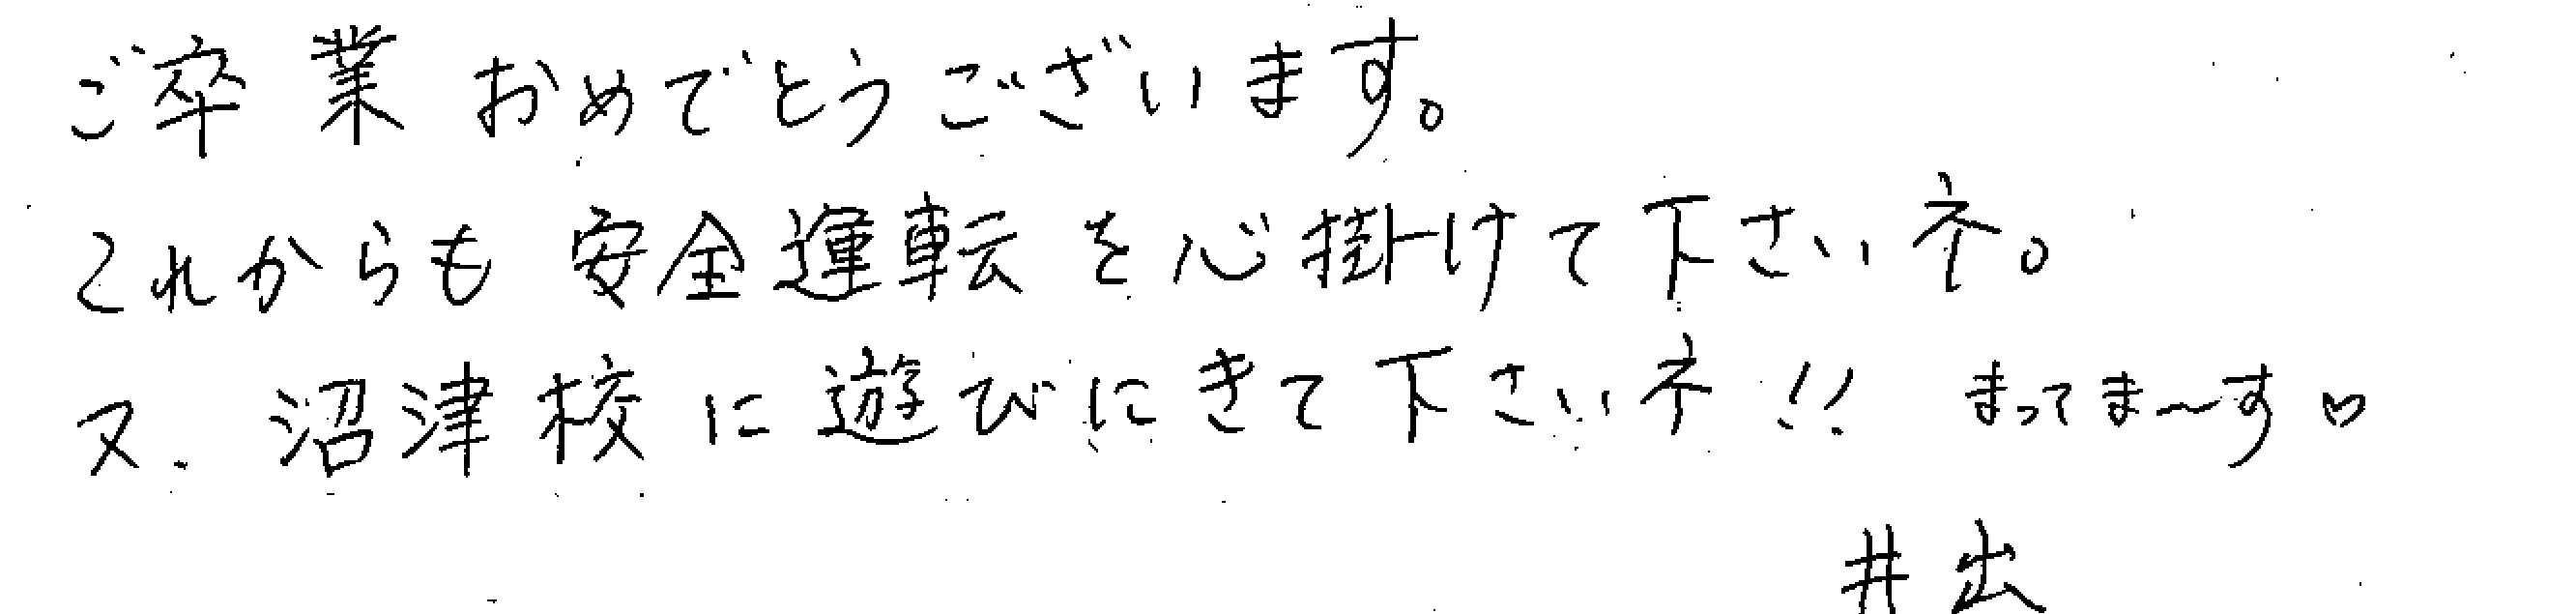 ご卒業おめでとうございます。
これからも安全運転を心掛けて下さいネ。
又、沼津校に遊びにきて下さいネ!! まってま〜す♡
井出